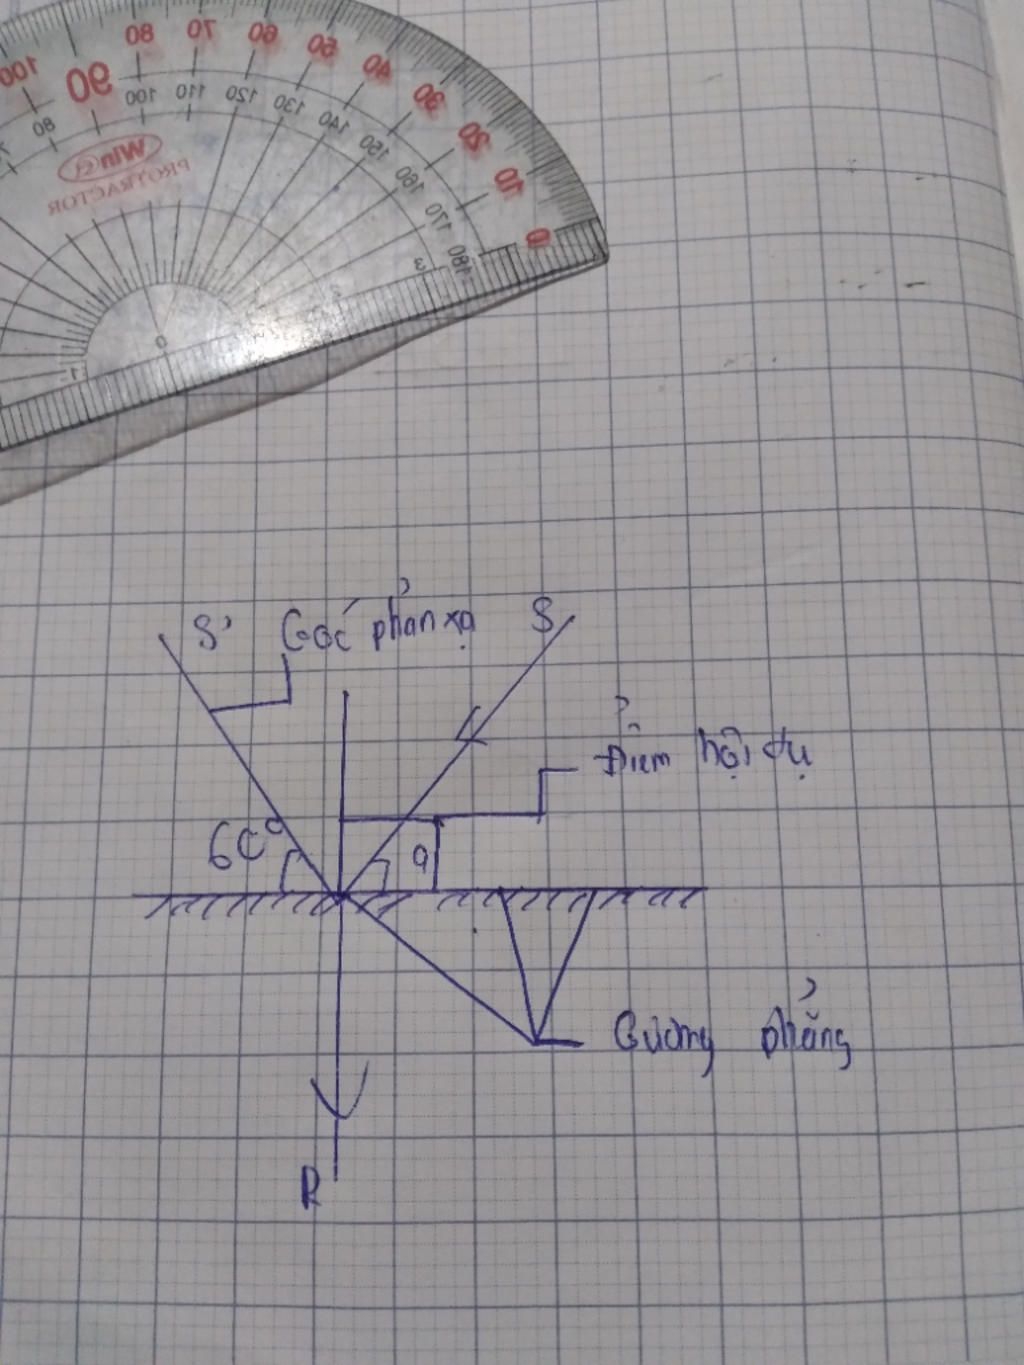 100 90 80 70 60 50 40 30 20 10 0
80 100 110 120 130 140 150 160 170 180
WinQ
PROTRACTOR
0 3
S' Góc phản xạ S
Điểm hội dụ
60° a
Gương phẳng
R